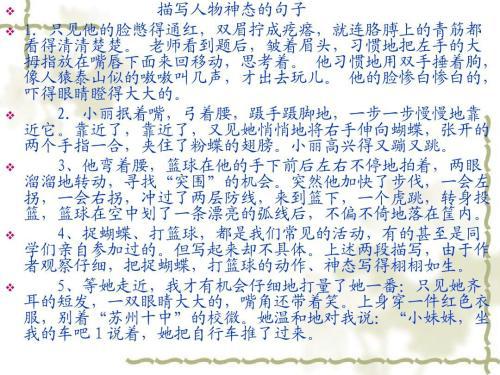 描写人物神态的句子
1．只见他的脸憋得通红，双眉拧成疙瘩，就连胳膊上的青筋都
看得清清楚楚。 老师看到题后，皱着眉头，习惯地把左手的大
拇指放在嘴唇下面来回移动，思考着。 他习惯地用双手捶着胸，
像人猿泰山似的嗷嗷叫几声，才出去玩儿。 他的脸惨白惨白的，
吓得眼睛瞪得大大的。
2．小丽抿着嘴，弓着腰，蹑手蹑脚地，一步一步慢慢地靠
近它。靠近了，靠近了，又见她悄悄地将右手伸向蝴蝶，张开的
两个手指一合，夹住了粉蝶的翅膀。小丽高兴得又蹦又跳。
3、他弯着腰，篮球在他的手下前后左右不停地拍着，两眼
溜溜地转动，寻找“突围”的机会。突然他加快了步伐，一会左
拐，一会右拐，冲过了两层防线，来到篮下，一个虎跳，转身投
篮，篮球在空中划了一条漂亮的弧线后，不偏不倚地落在筐内。
4、捉蝴蝶、打篮球，都是我们常见的活动，有的甚至是同
学们亲自参加过的。但写起来却不具体。上述两段描写，由于作
者观察仔细，把捉蝴蝶，打篮球的动作、神态写得栩栩如生。
5、等她走近，我才有机会仔细地打量了她一番：只见她齐
耳的短发，一双眼睛大大的，嘴角还带着笑。上身穿一件红色衣
服，别着“苏州十中”的校徽。她温和地对我说：“小妹妹，坐
我的车吧1说着，她把自行车推了过来。